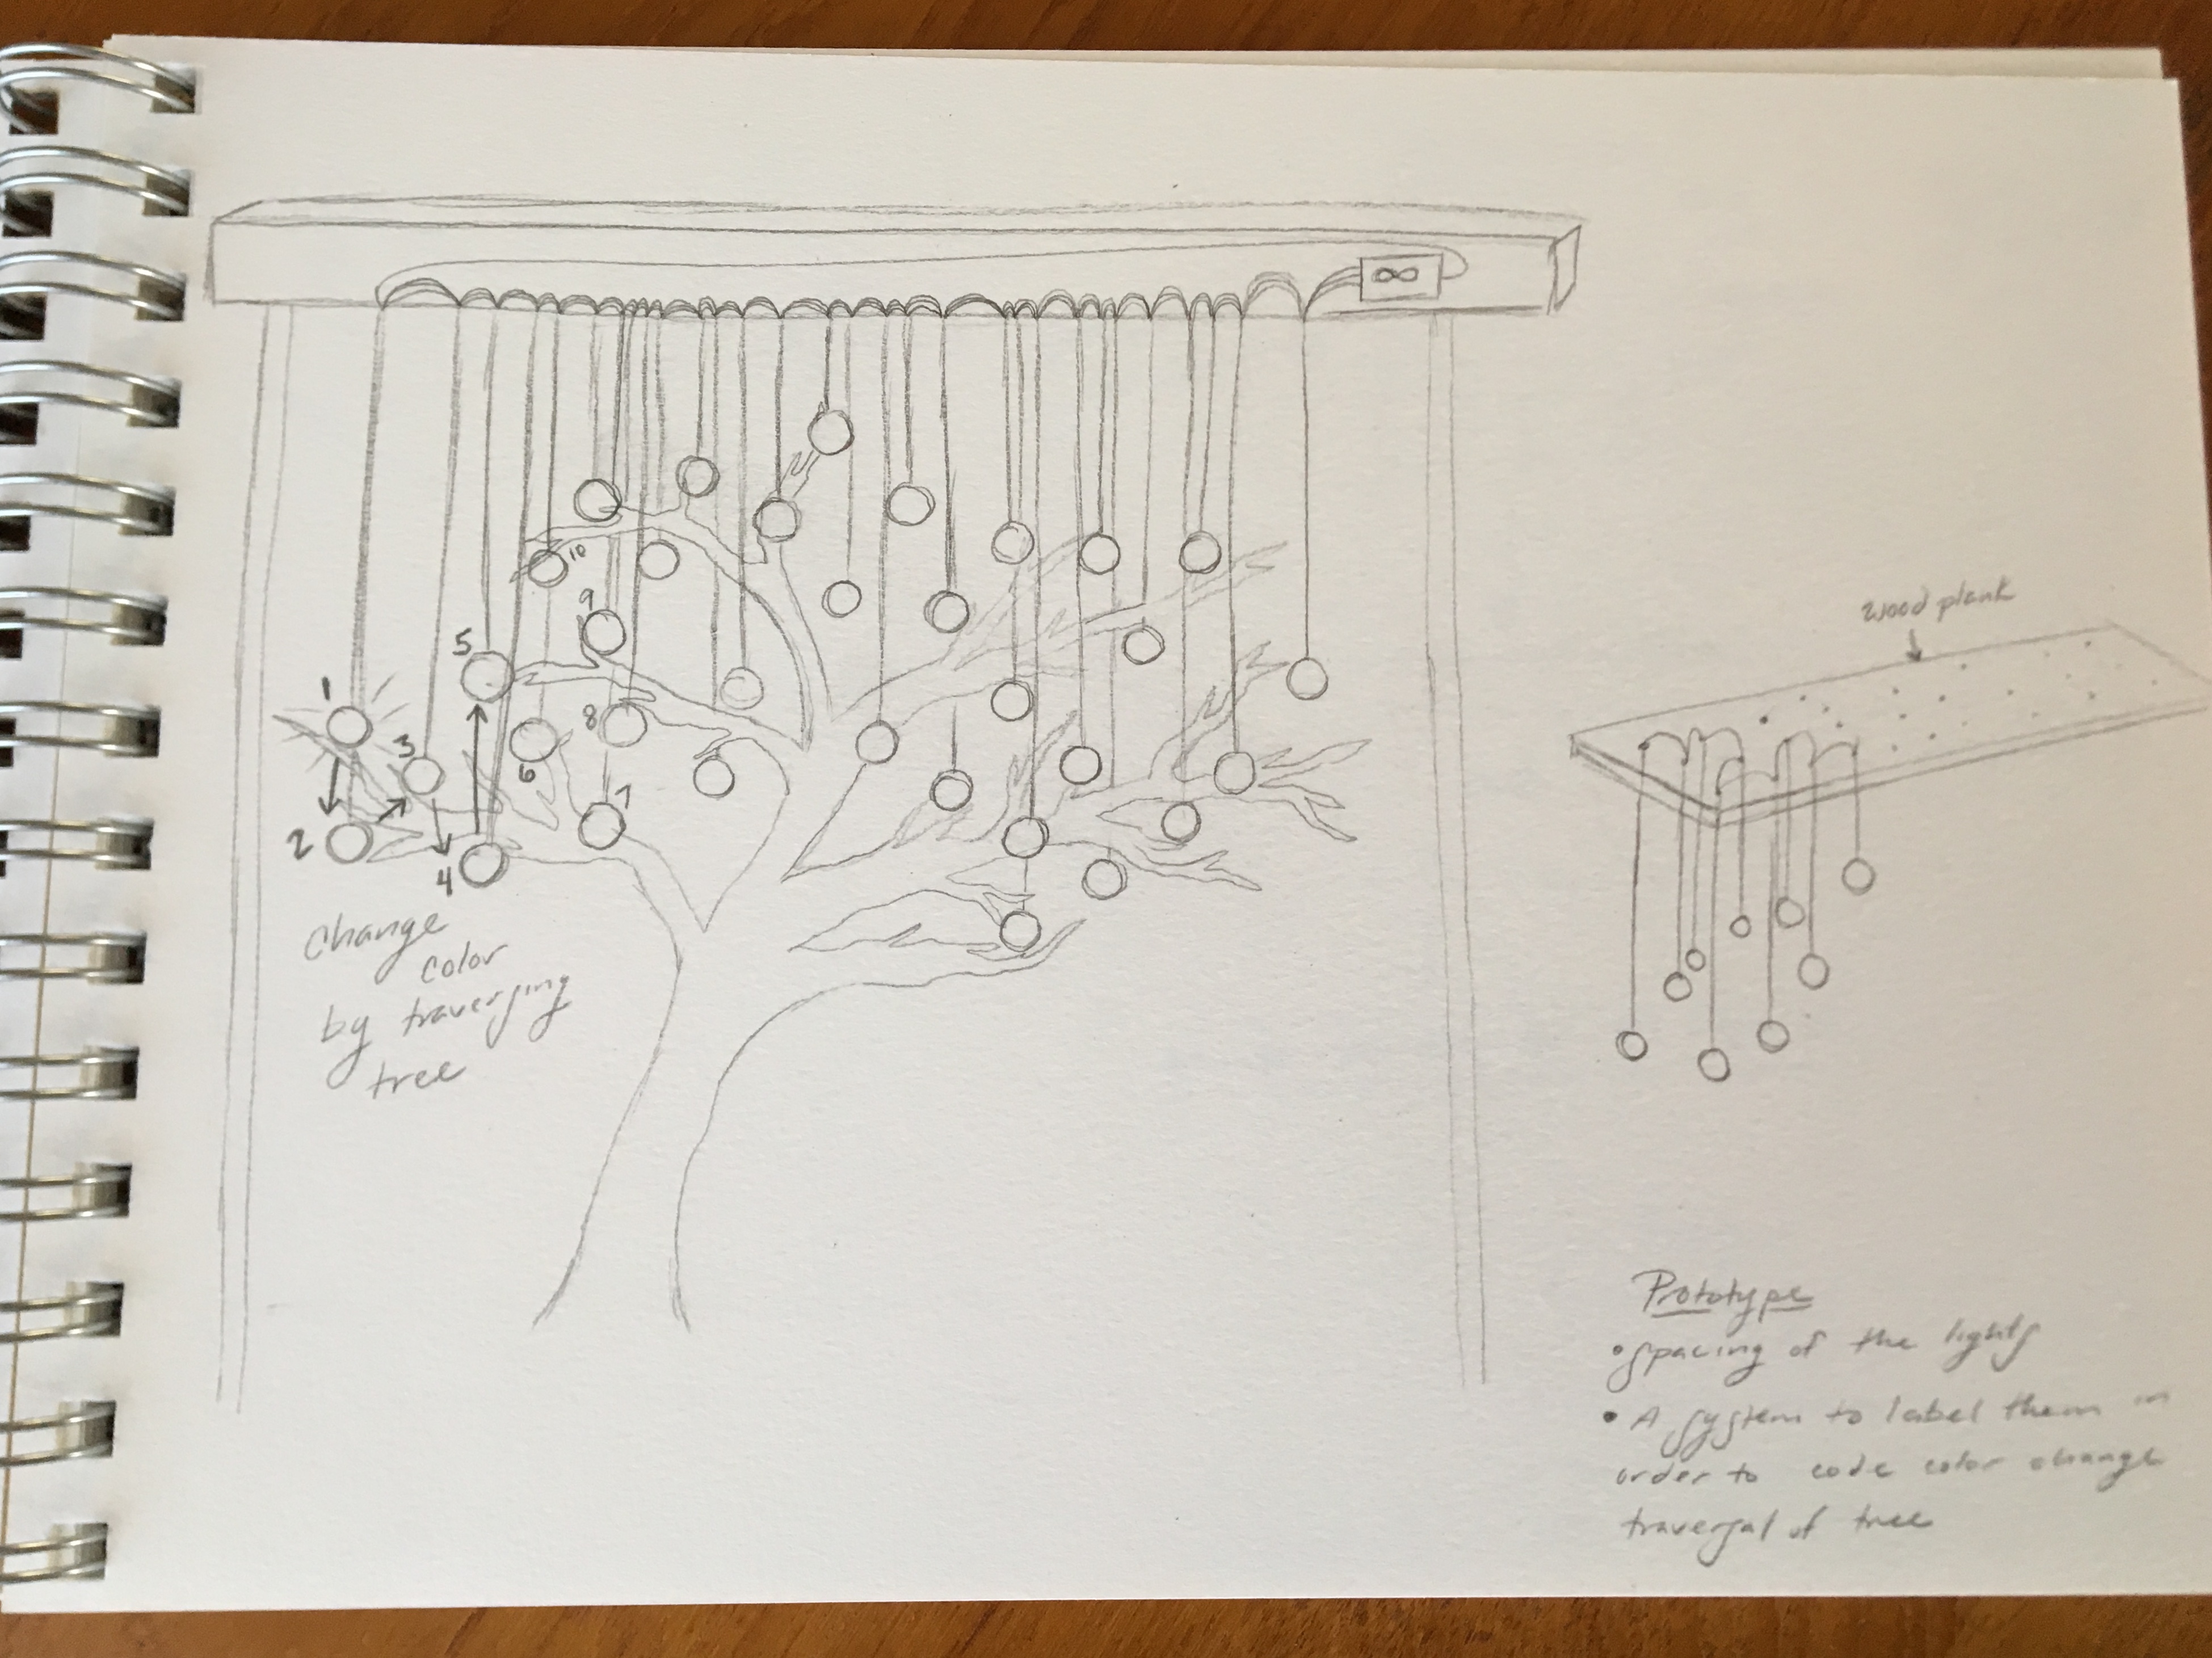 10
9
5
1
8
3
6
7
2
4
change
color
by traversing
tree
wood plank
Prototype
• spacing of the lights
• A system to label them in
order to code color change
traversal of tree